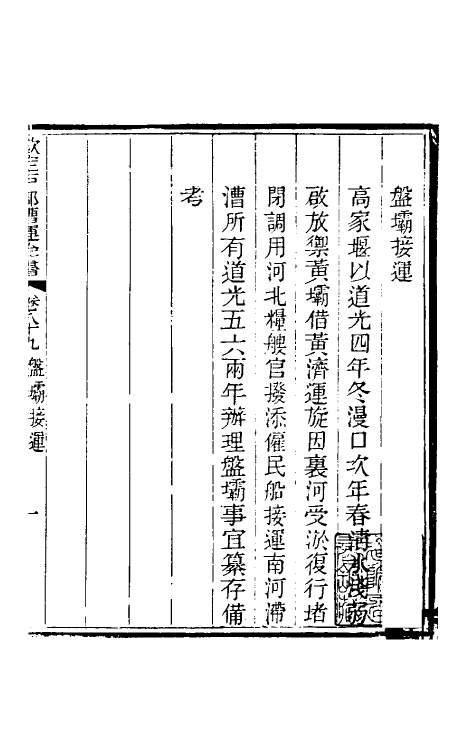 盤壩接運
高家堰以道光四年冬漫口次年春清水淺弱
啟放禦黃壩借黃濟運旋因裏河受淤復行堵
閉調用河北糧艘官撥添僱民船接運南河滯
漕所有道光五六兩年辦理盤壩事宜纂存備
考
欽定戶部漕運全書
卷八十九 盤壩接運
一